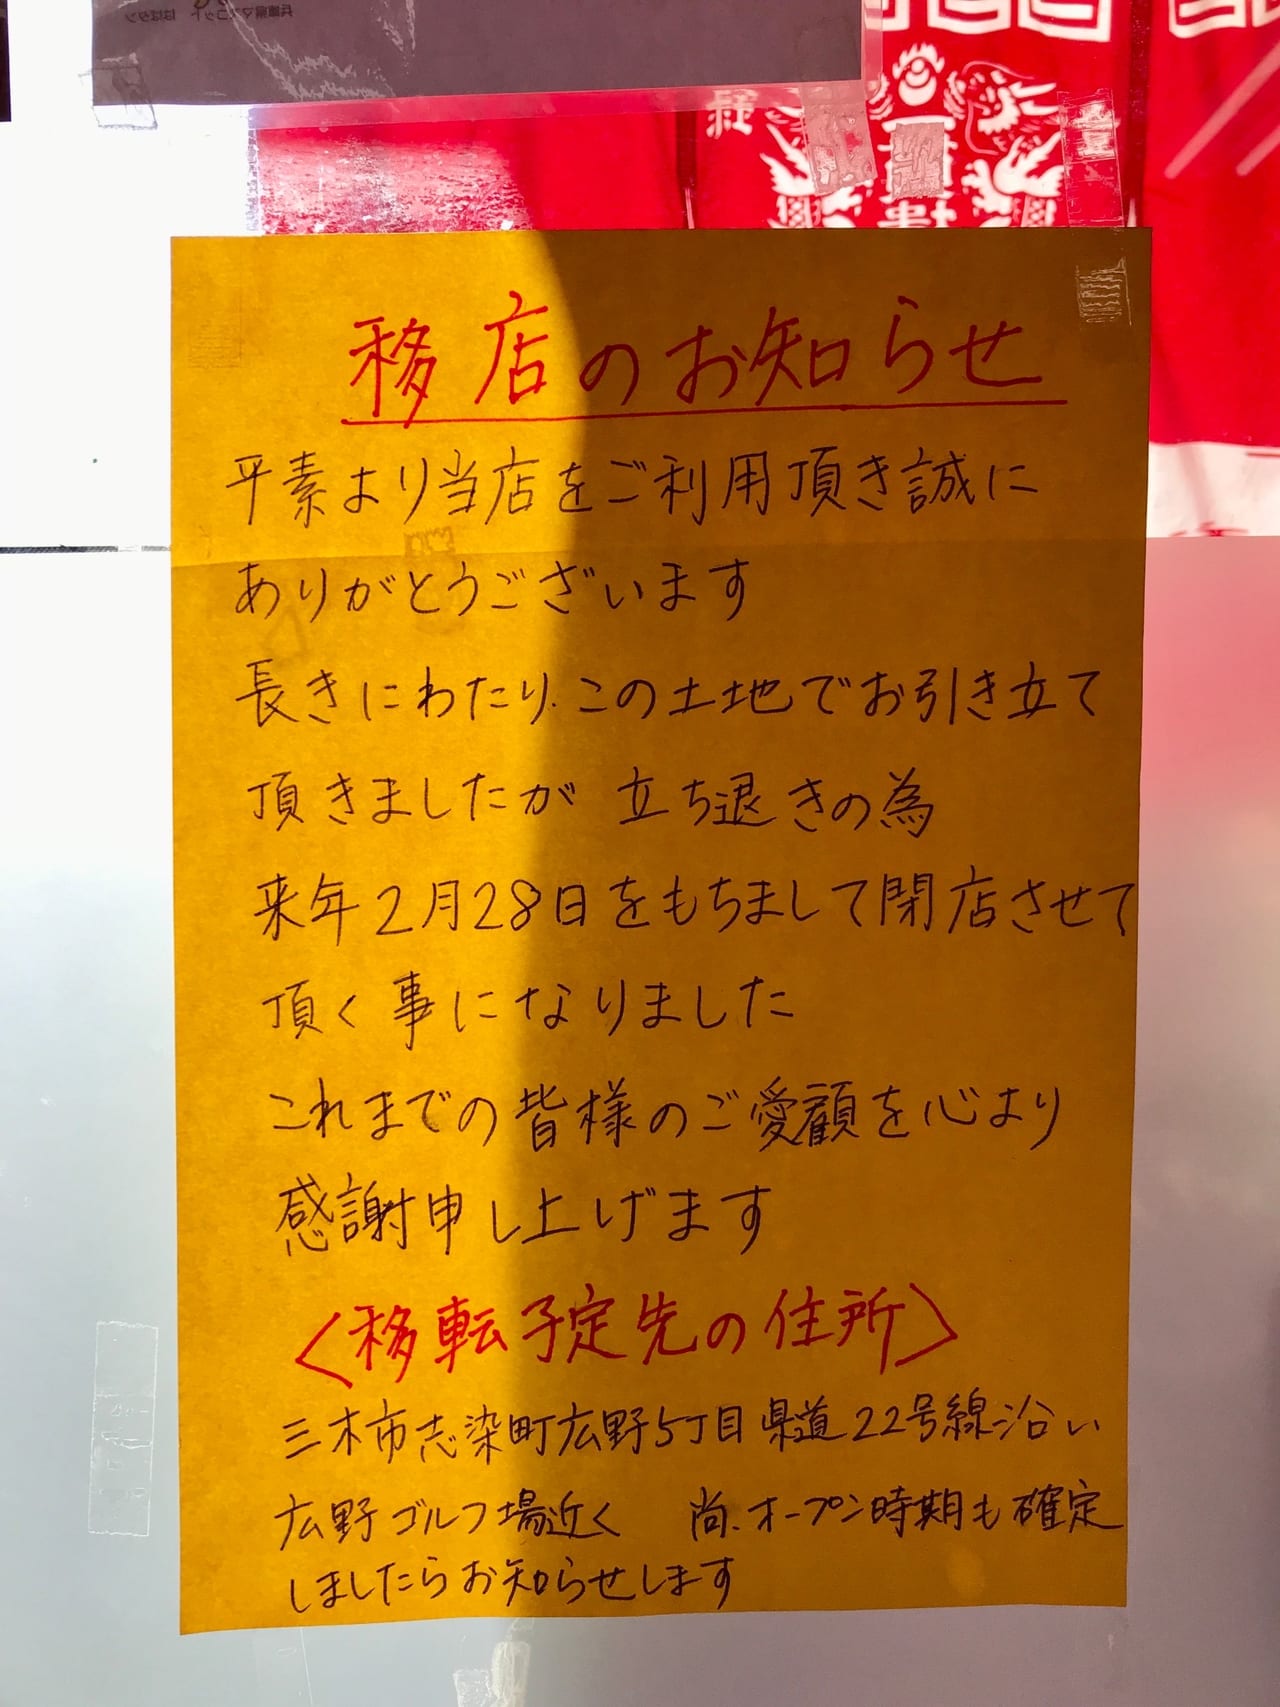 兵庫県マスコット はばタン
移店のお知らせ
平素より当店をご利用頂き誠に
ありがとうございます
長きにわたり、この土地でお引き立て
頂きましたが 立ち退きの為
来年2月28日をもちまして閉店させて
頂く事になりました
これまでの皆様のご愛顧を心より
感謝申し上げます
〈移転予定先の住所〉
三木市志染町広野5丁目県道22号線沿い
広野ゴルフ場近く 尚、オープン時期も確定
しましたらお知らせします